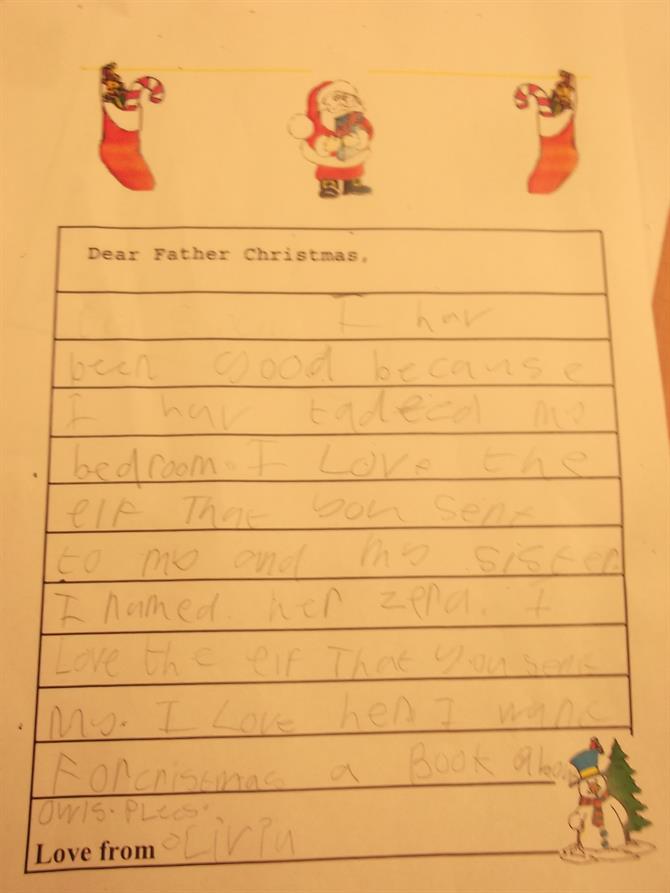 Dear Father Christmas,
I hav
been good because
I hav tadeed my
bedroom. I Love the
elf That you sent
to my and my sister
I named her zena. I
Love the elf That you sent
my. I Love her I want
Forcristmas a Book about
owls. pleas.
Love from oLivia